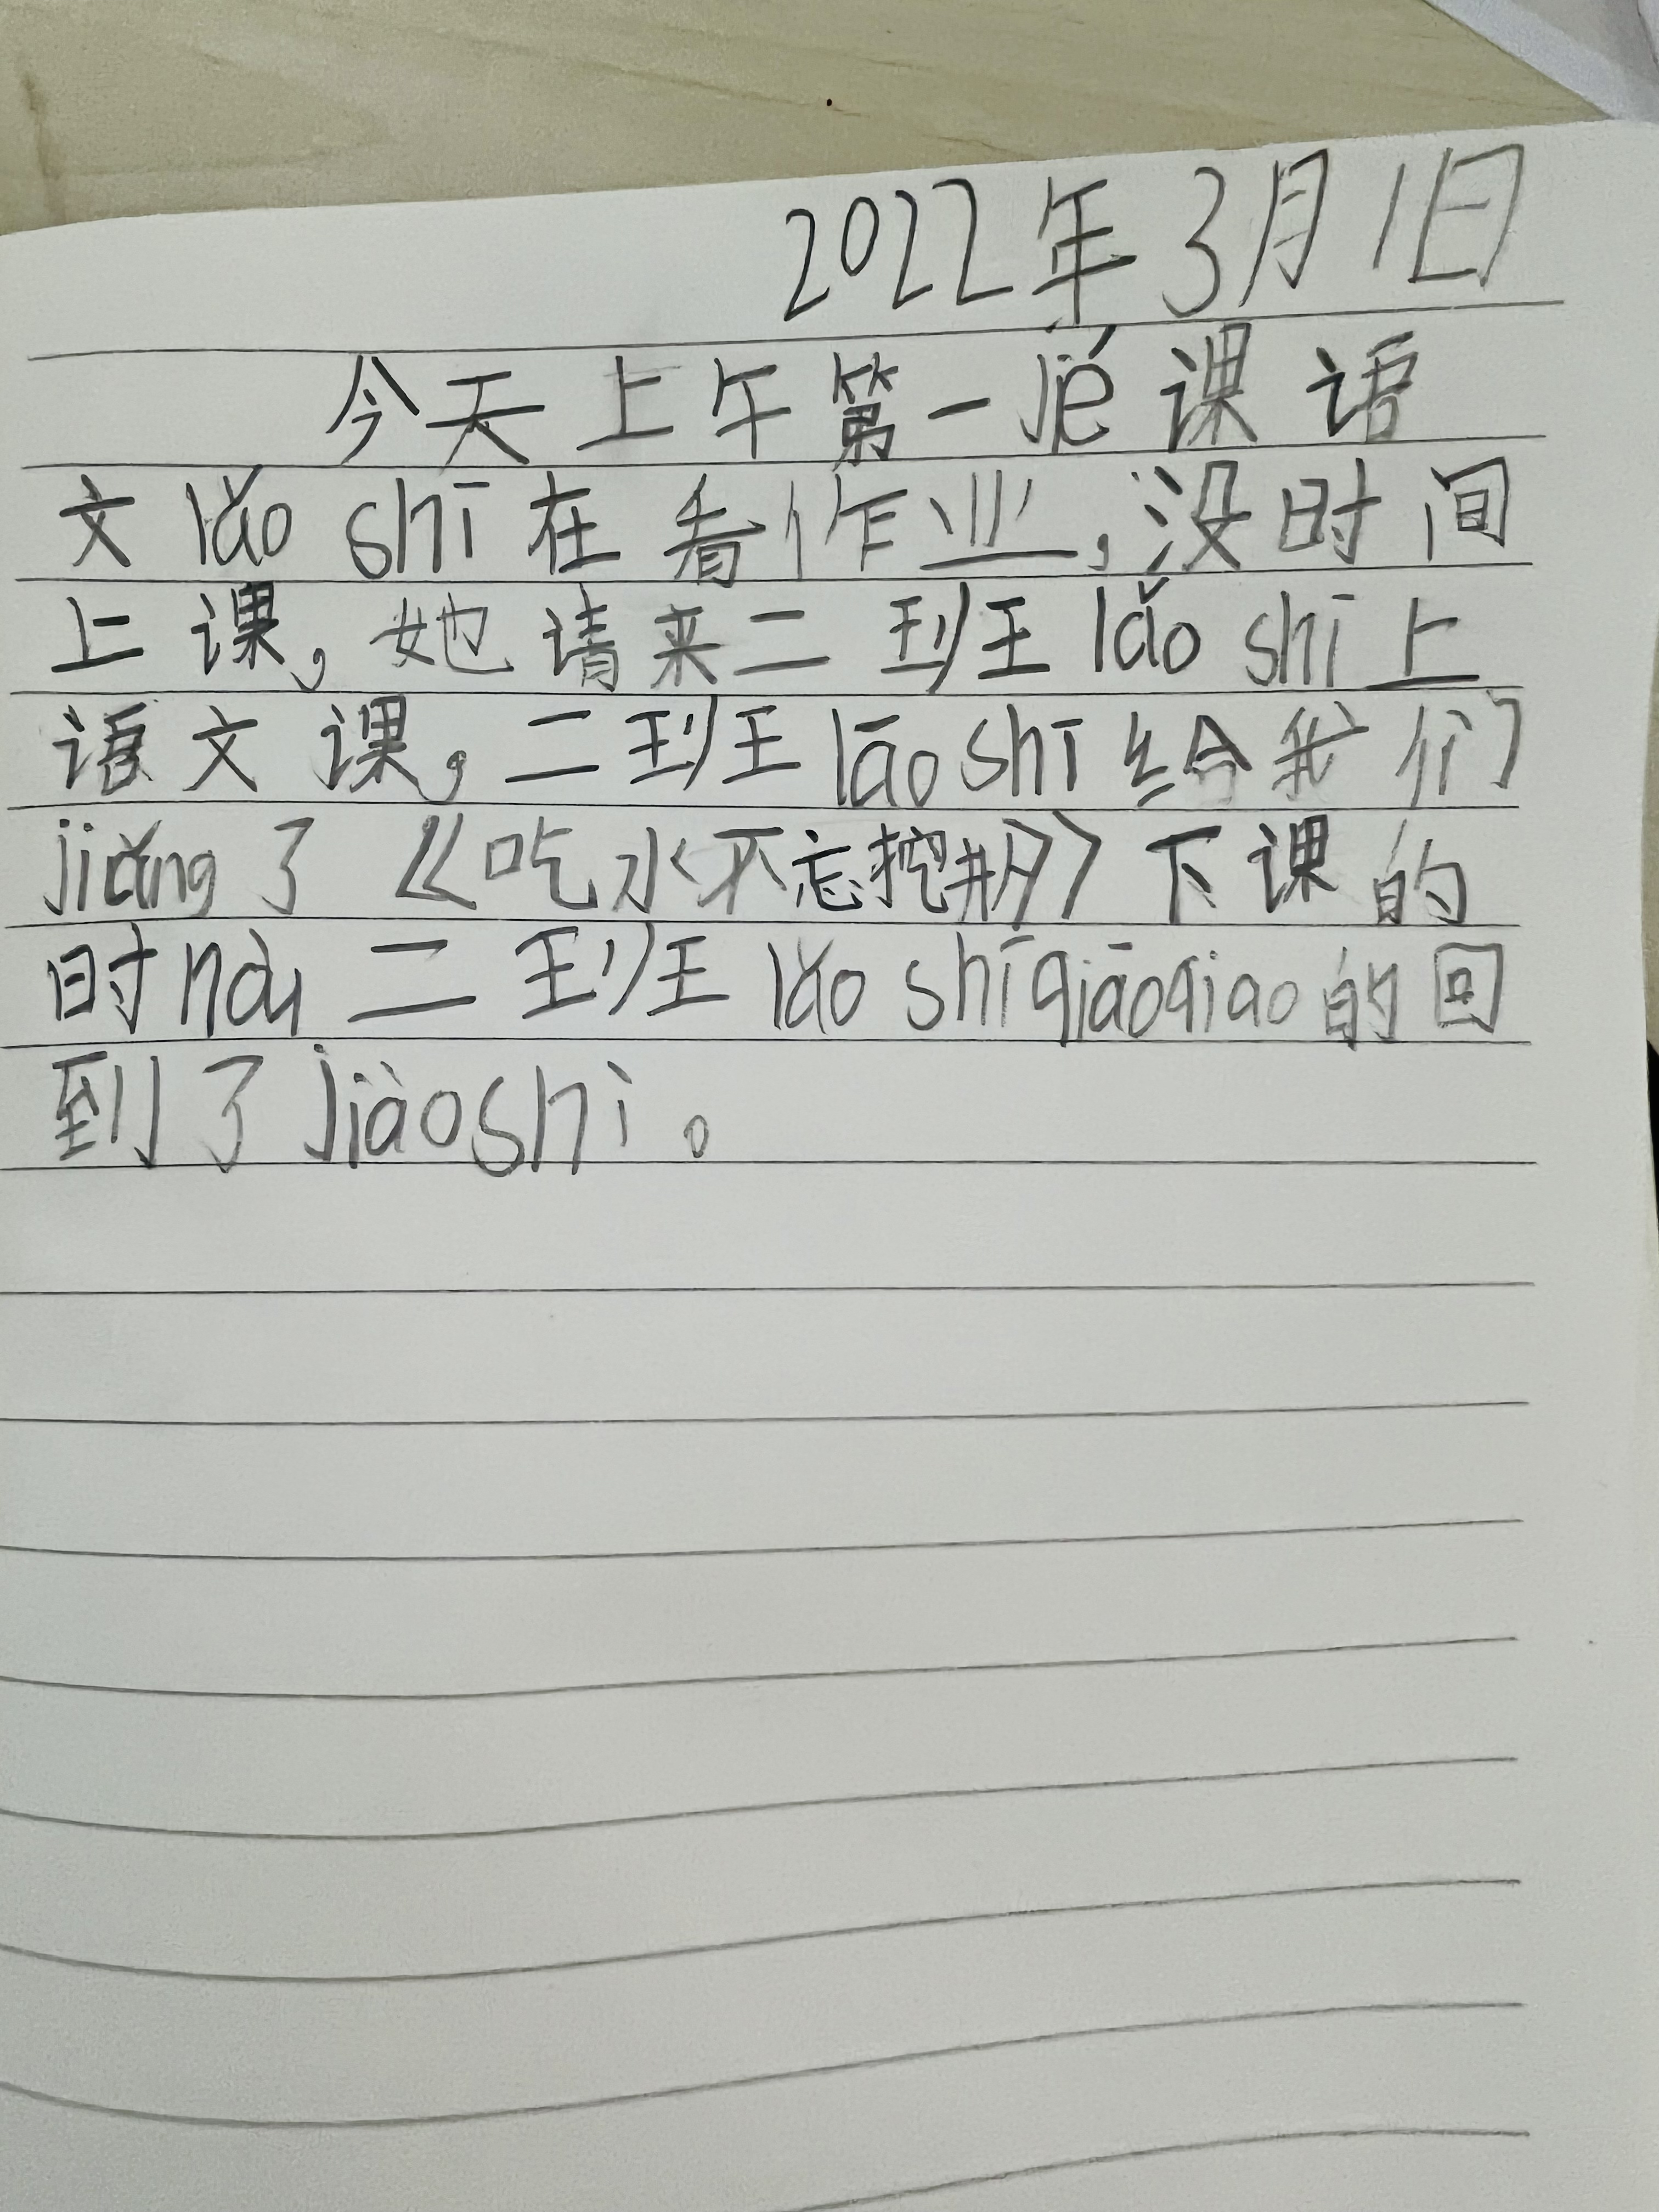 2022年3月1日
今天上午第一jié课语
文lǎo shī在看作业,没时间
上课,她请来二班lǎo shī上
语文课,二班lāo shī给我们
jiǎng了《吃水不忘挖井人》下课的
时hòu二班lǎo shī qiāoqiao的回
到了jiàoshì。